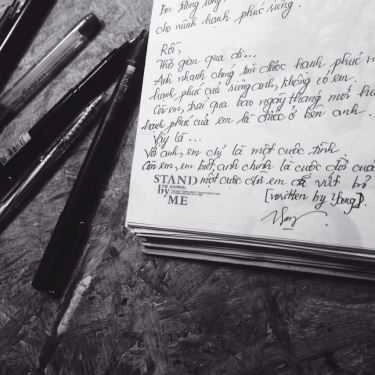 cho mình hạnh phúc riêng.
Rồi,
Thời gian qua đi...
Anh nhanh chóng tìm được hạnh phúc m
hạnh phúc của riêng anh, không có em.
Còn em, trải qua bao ngày tháng mới hi
hạnh phúc của em là được ở bên anh.
Vậy là...
Với anh, em chỉ là một cuộc tình.
Còn em, em biết, anh chính là cuộc đời của
một cuộc đời em đã vứt bỏ
STAND
by
ME
[written by